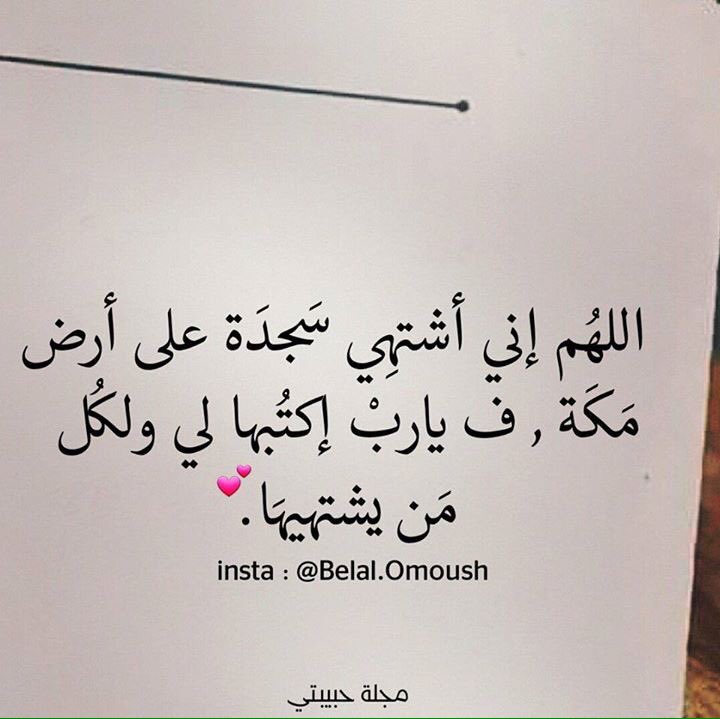 اللهُم إني أشتهِي سَجدَة على أرض
مَكَة , ف ياربْ إكتُبها لي ولكُل
مَن يشتهيهَا.💕
insta : @Belal.Omoush
مجلة حبيبتي